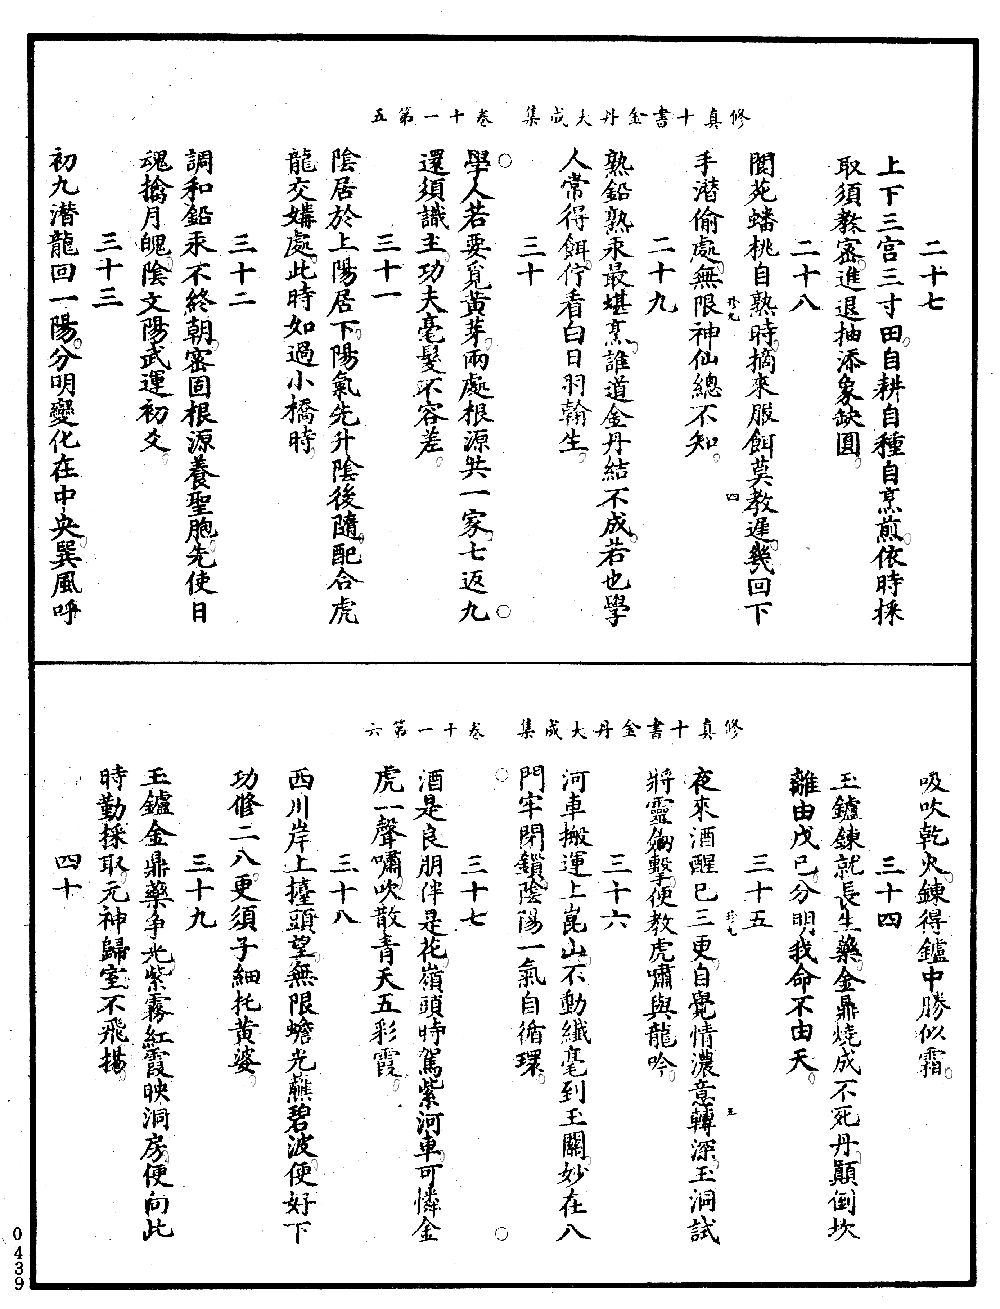 修真十書金丹大成集　卷十一第五
二十七
上下三宮三寸田。自耕自種自烹煎。依時採
取須教密。進退抽添象缺圓。
二十八
閬苑蟠桃自熟時。摘來服餌莫教遲。幾回下
手潛偷處。無限神仙總不知。
二十九
熟鉛熟汞最堪烹。誰道金丹結不成。若也學
人常得餌。佇看白日羽翰生。
三十
學人若要覓黃芽。兩處根源共一家。七返九
還須識主。功夫毫髮不容差。
三十一
陰居於上陽居下。陽氣先升陰後隨。配合虎
龍交媾處。此時如過小橋時。
三十二
調和鉛汞不終朝。密固根源養聖胞。先使日
魂擒月魄。陰文陽武運初爻。
三十三
初九潛龍回一陽。分明變化在中央。巽風呼
修真十書金丹大成集　卷十一第六
吸吹乾火。鍊得鑪中勝似霜。
三十四
玉鑪鍊就長生藥。金鼎燒成不死丹。顛倒坎
離由戊己。分明我命不由天。
三十五
夜來酒醒已三更。自覺情濃意轉深。玉洞試
將靈劒擊。便教虎嘯與龍吟。
三十六
河車搬運上崑山。不動纖毫到玉關。妙在八
門牢閉鎖。陰陽一氣自循環。
三十七
酒是良朋伴是花。嶺頭時駕紫河車。可憐金
虎一聲嘯。吹散青天五彩霞。
三十八
西川岸上擡頭望。無限蟾光蘸碧波。便好下
功修二八。更須子細托黃婆。
三十九
玉鑪金鼎藥爭光。紫霧紅霞映洞房。便向此
時勤採取。元神歸室不飛揚。
四十
0439